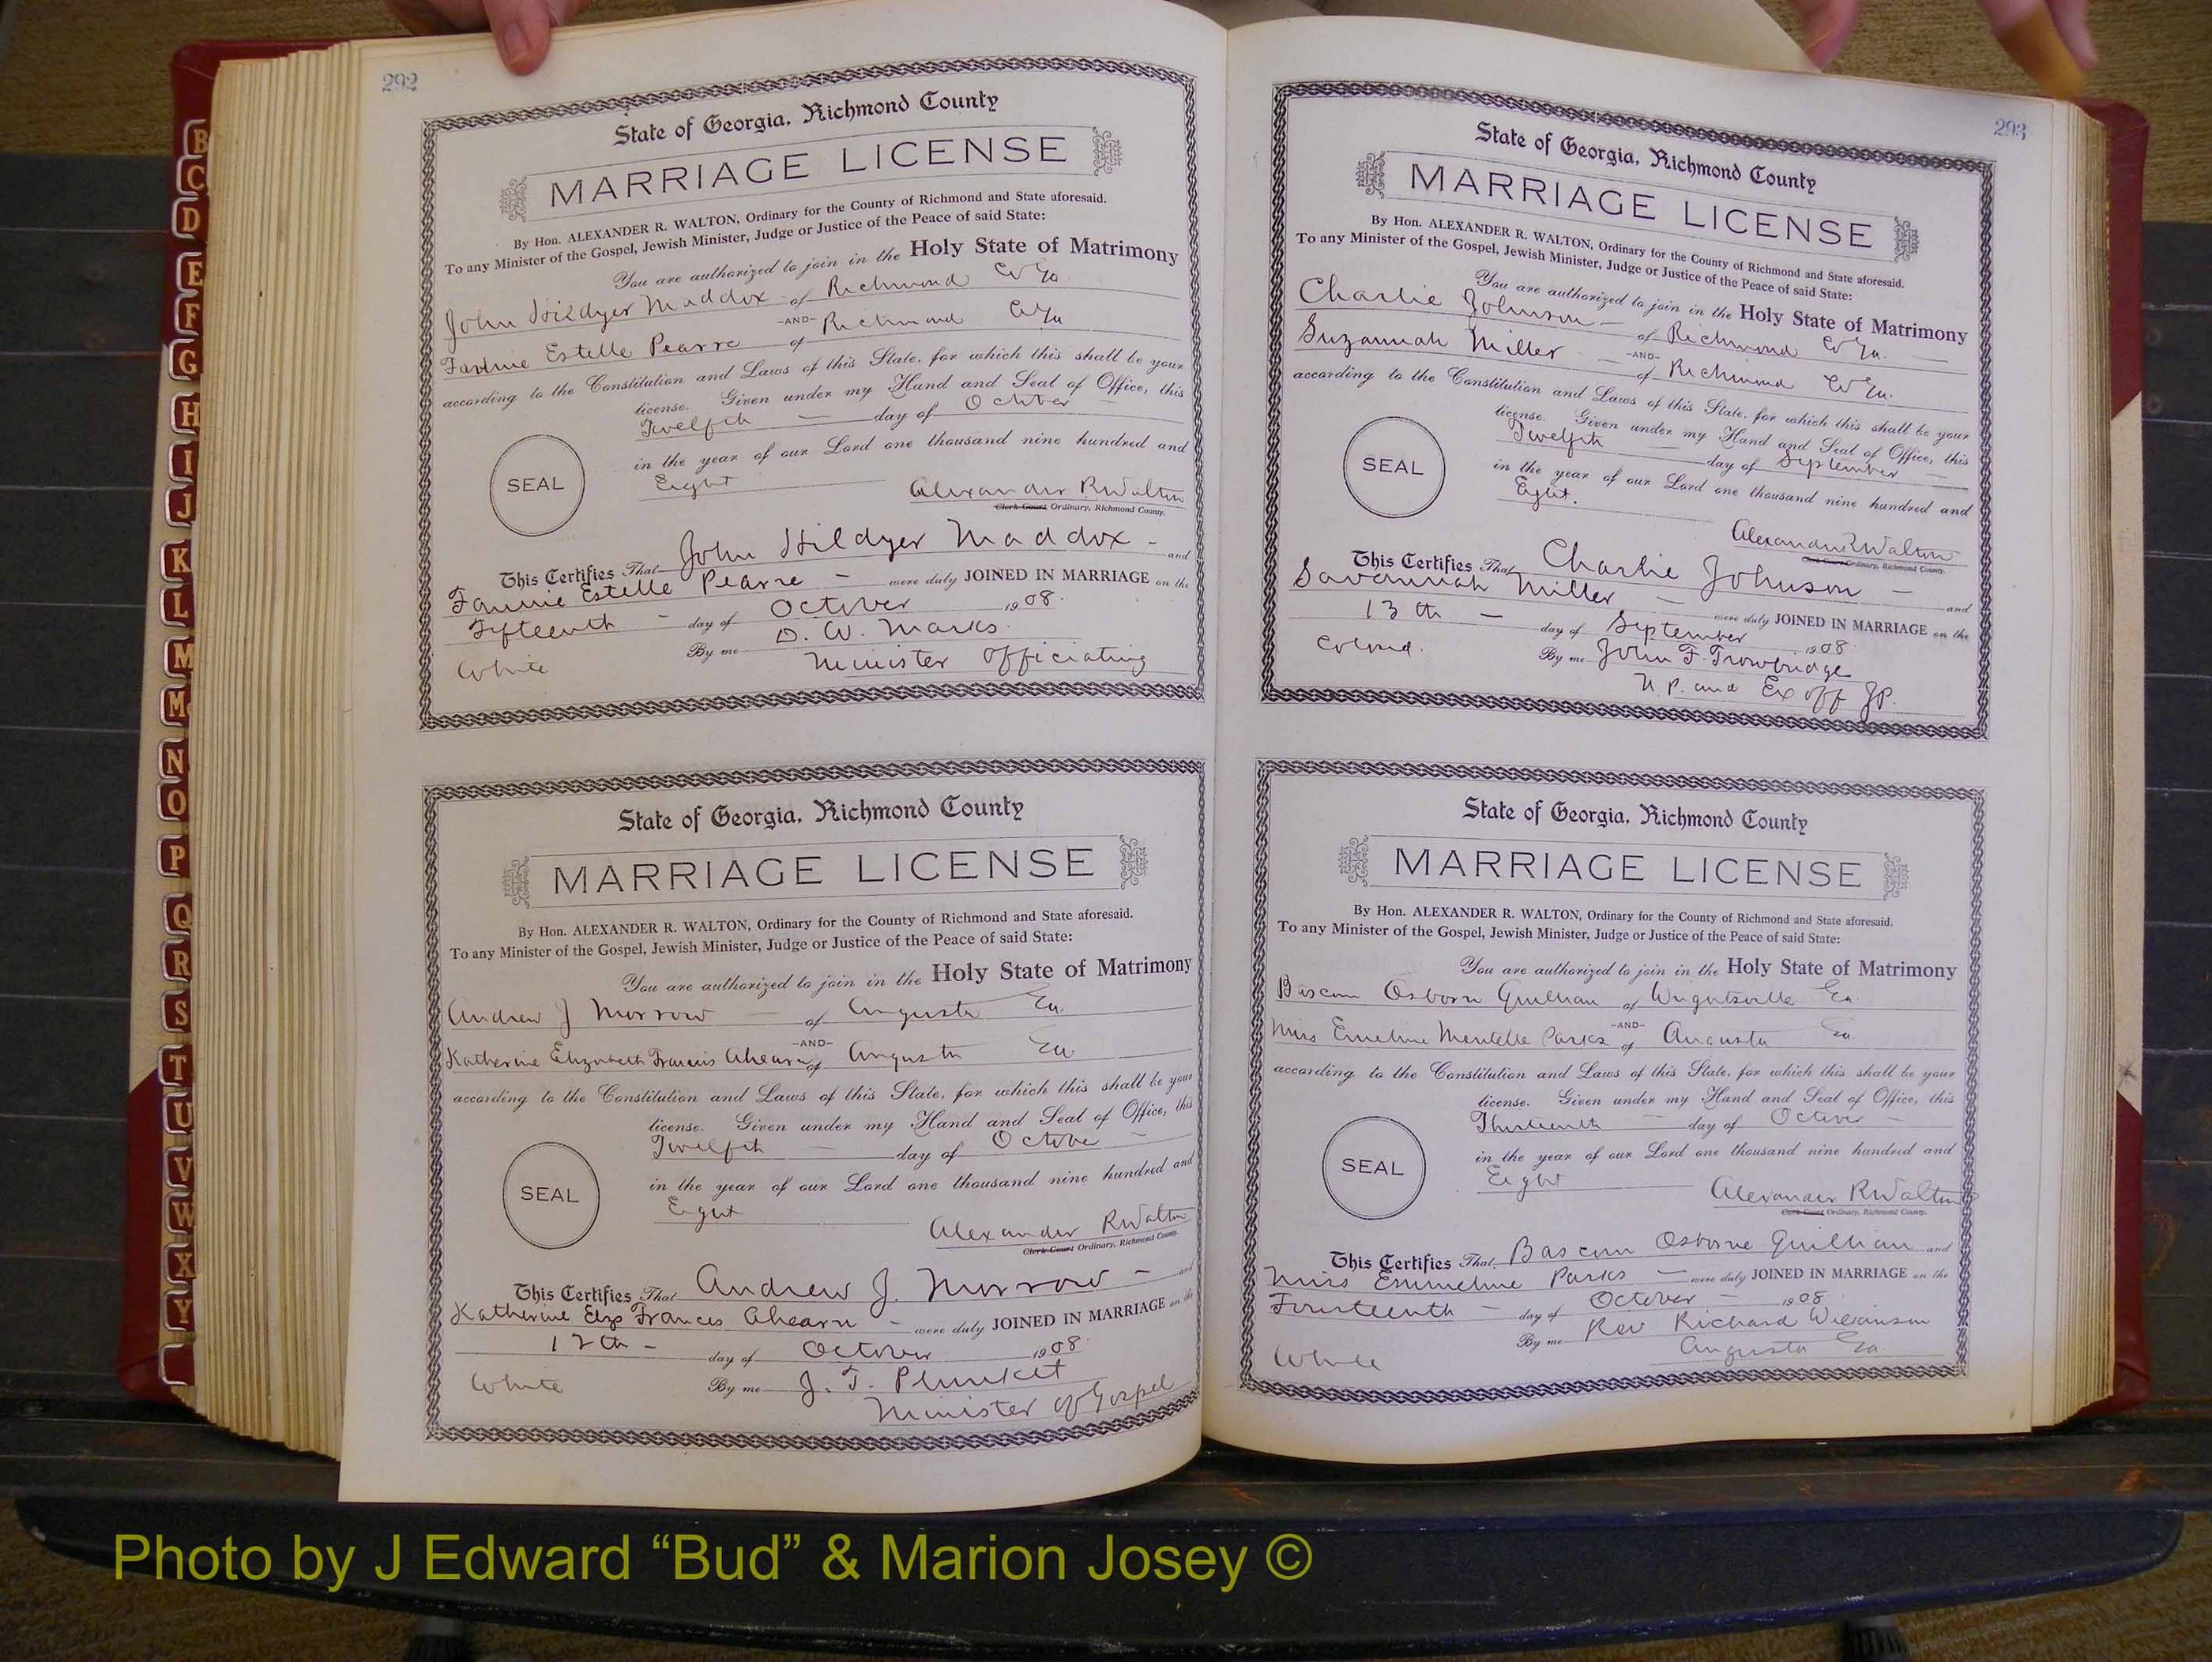 292
State of Georgia, Richmond County
MARRIAGE LICENSE
By Hon. ALEXANDER R. WALTON, Ordinary for the County of Richmond and State aforesaid.
To any Minister of the Gospel, Jewish Minister, Judge or Justice of the Peace of said State:
You are authorized to join in the Holy State of Matrimony
John Hildyer Maddox of Richmond Co Ga
-AND-
Estelle Pearre of Richmond Co Ga
according to the Constitution and Laws of this State, for which this shall be your
license. Given under my Hand and Seal of Office, this
Twelfth — day of October
in the year of our Lord one thousand nine hundred and
SEAL
Eight
Alexander R Walton
Clerk Court Ordinary, Richmond County.
This Certifies That John Hildyer Maddox - and
Fannie Estelle Pearre - were duly JOINED IN MARRIAGE on the
Fifteenth - day of October 1908.
By me D. W. Marks.
White Minister officiating
State of Georgia, Richmond County
MARRIAGE LICENSE
By Hon. ALEXANDER R. WALTON, Ordinary for the County of Richmond and State aforesaid.
To any Minister of the Gospel, Jewish Minister, Judge or Justice of the Peace of said State:
You are authorized to join in the Holy State of Matrimony
Andrew J Morrow — of Augusta Ga.
-AND-
Katherine Elizabeth Francis Ahearn of Augusta Ga
according to the Constitution and Laws of this State, for which this shall be your
license. Given under my Hand and Seal of Office, this
Twelfth — day of October —
in the year of our Lord one thousand nine hundred and
SEAL
Eight
Alexander R Walton
Clerk Court Ordinary, Richmond County
This Certifies That Andrew J. Morrow - and
Katherine Elz Frances Ahearn - were duly JOINED IN MARRIAGE on the
12th - day of October 1908
White By me J. T. Plunket
Minister of Gospel
293
State of Georgia, Richmond County
MARRIAGE LICENSE
By Hon. ALEXANDER R. WALTON, Ordinary for the County of Richmond and State aforesaid.
To any Minister of the Gospel, Jewish Minister, Judge or Justice of the Peace of said State:
You are authorized to join in the Holy State of Matrimony
Charlie Johnson — of Richmond Co Ga. —
-AND-
Suzannah Miller — of Richmond Co Ga.
according to the Constitution and Laws of this State, for which this shall be your
license. Given under my Hand and Seal of Office, this
Twelfth — day of September —
in the year of our Lord one thousand nine hundred and
SEAL
Eight.
Alexander R Walton
Clerk Court Ordinary, Richmond County.
This Certifies That Charlie Johnson - and
Savannah Miller — were duly JOINED IN MARRIAGE on the
13th - day of September 1908
Colored. By me John F. Trowbridge
N. P. and Ex off JP.
State of Georgia, Richmond County
MARRIAGE LICENSE
By Hon. ALEXANDER R. WALTON, Ordinary for the County of Richmond and State aforesaid.
To any Minister of the Gospel, Jewish Minister, Judge or Justice of the Peace of said State:
You are authorized to join in the Holy State of Matrimony
Bascom Osborn Quillian of Wrightsville Ga.
-AND-
Miss Emeline Parks of Augusta Ga.
according to the Constitution and Laws of this State, for which this shall be your
license. Given under my Hand and Seal of Office, this
Thirteenth — day of October -
in the year of our Lord one thousand nine hundred and
SEAL
Eight
Alexander R Walton
Clerk Court Ordinary, Richmond County.
This Certifies That Bascom Osborne Quillian and
Miss Emmeline Parks — were duly JOINED IN MARRIAGE on the
Fourteenth - day of October - 1908
By me Rev Richard Wilkinson
White Augusta Ga
B
C
D
E
F
G
H
I
J
K
L
M
Mc
N
O
P
Q
R
S
T
U
V
W
X
Y
Photo by J Edward “Bud” & Marion Josey ©